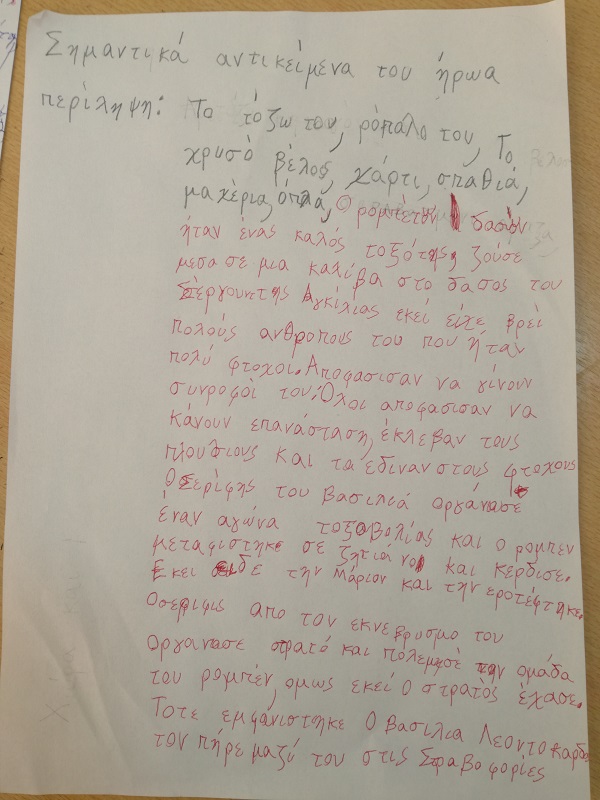 Σημαντικά αντικείμενα του ήρωα
περίληψη: Το τόζω του, ρόπαλο του, Το
χρυσό βέλος, χάρτι, σπαθιά,
μαχέρια, όπλά, Ο ρομπέτον δασών
ήταν ένας καλός τοξότης, ζούσε
μεσα σε μια καλύβα στο δασος του
Σέργουντης Αγκίλιας εκεί είχε βρεί
πολούς ανθροπους του που ήταν
πολύ φτοχοι. Αποφασισαν να γίνουν
συνροφοί του. Όλοι αποφασισαν να
κάνουν επανάσταση, έκλεβαν τους
πλουσιους και τα έδιναν στους φτοχους
Ο Σερίφης του βασιλιά οργάνασε
έναν αγώνα τοξοβολίας και ο ρομπεν
μεταφιστηκε σε ζητιάνο και κέρδισε.
Εκει είδε την Μάριον και την εροτέφτηκε.
Οσεριφις απο τον εκνεβρυσμο του
Οργανασε στρατό και πολεμησε την ομάδα
του ρομπέν, ομως εκεί Ο στρατός έχασε.
Τοτε εμφάνιστηκε Ο βασιλια Λεοντοκαρδο
τον πήρε μαζύ του στις Σταβοφορίες